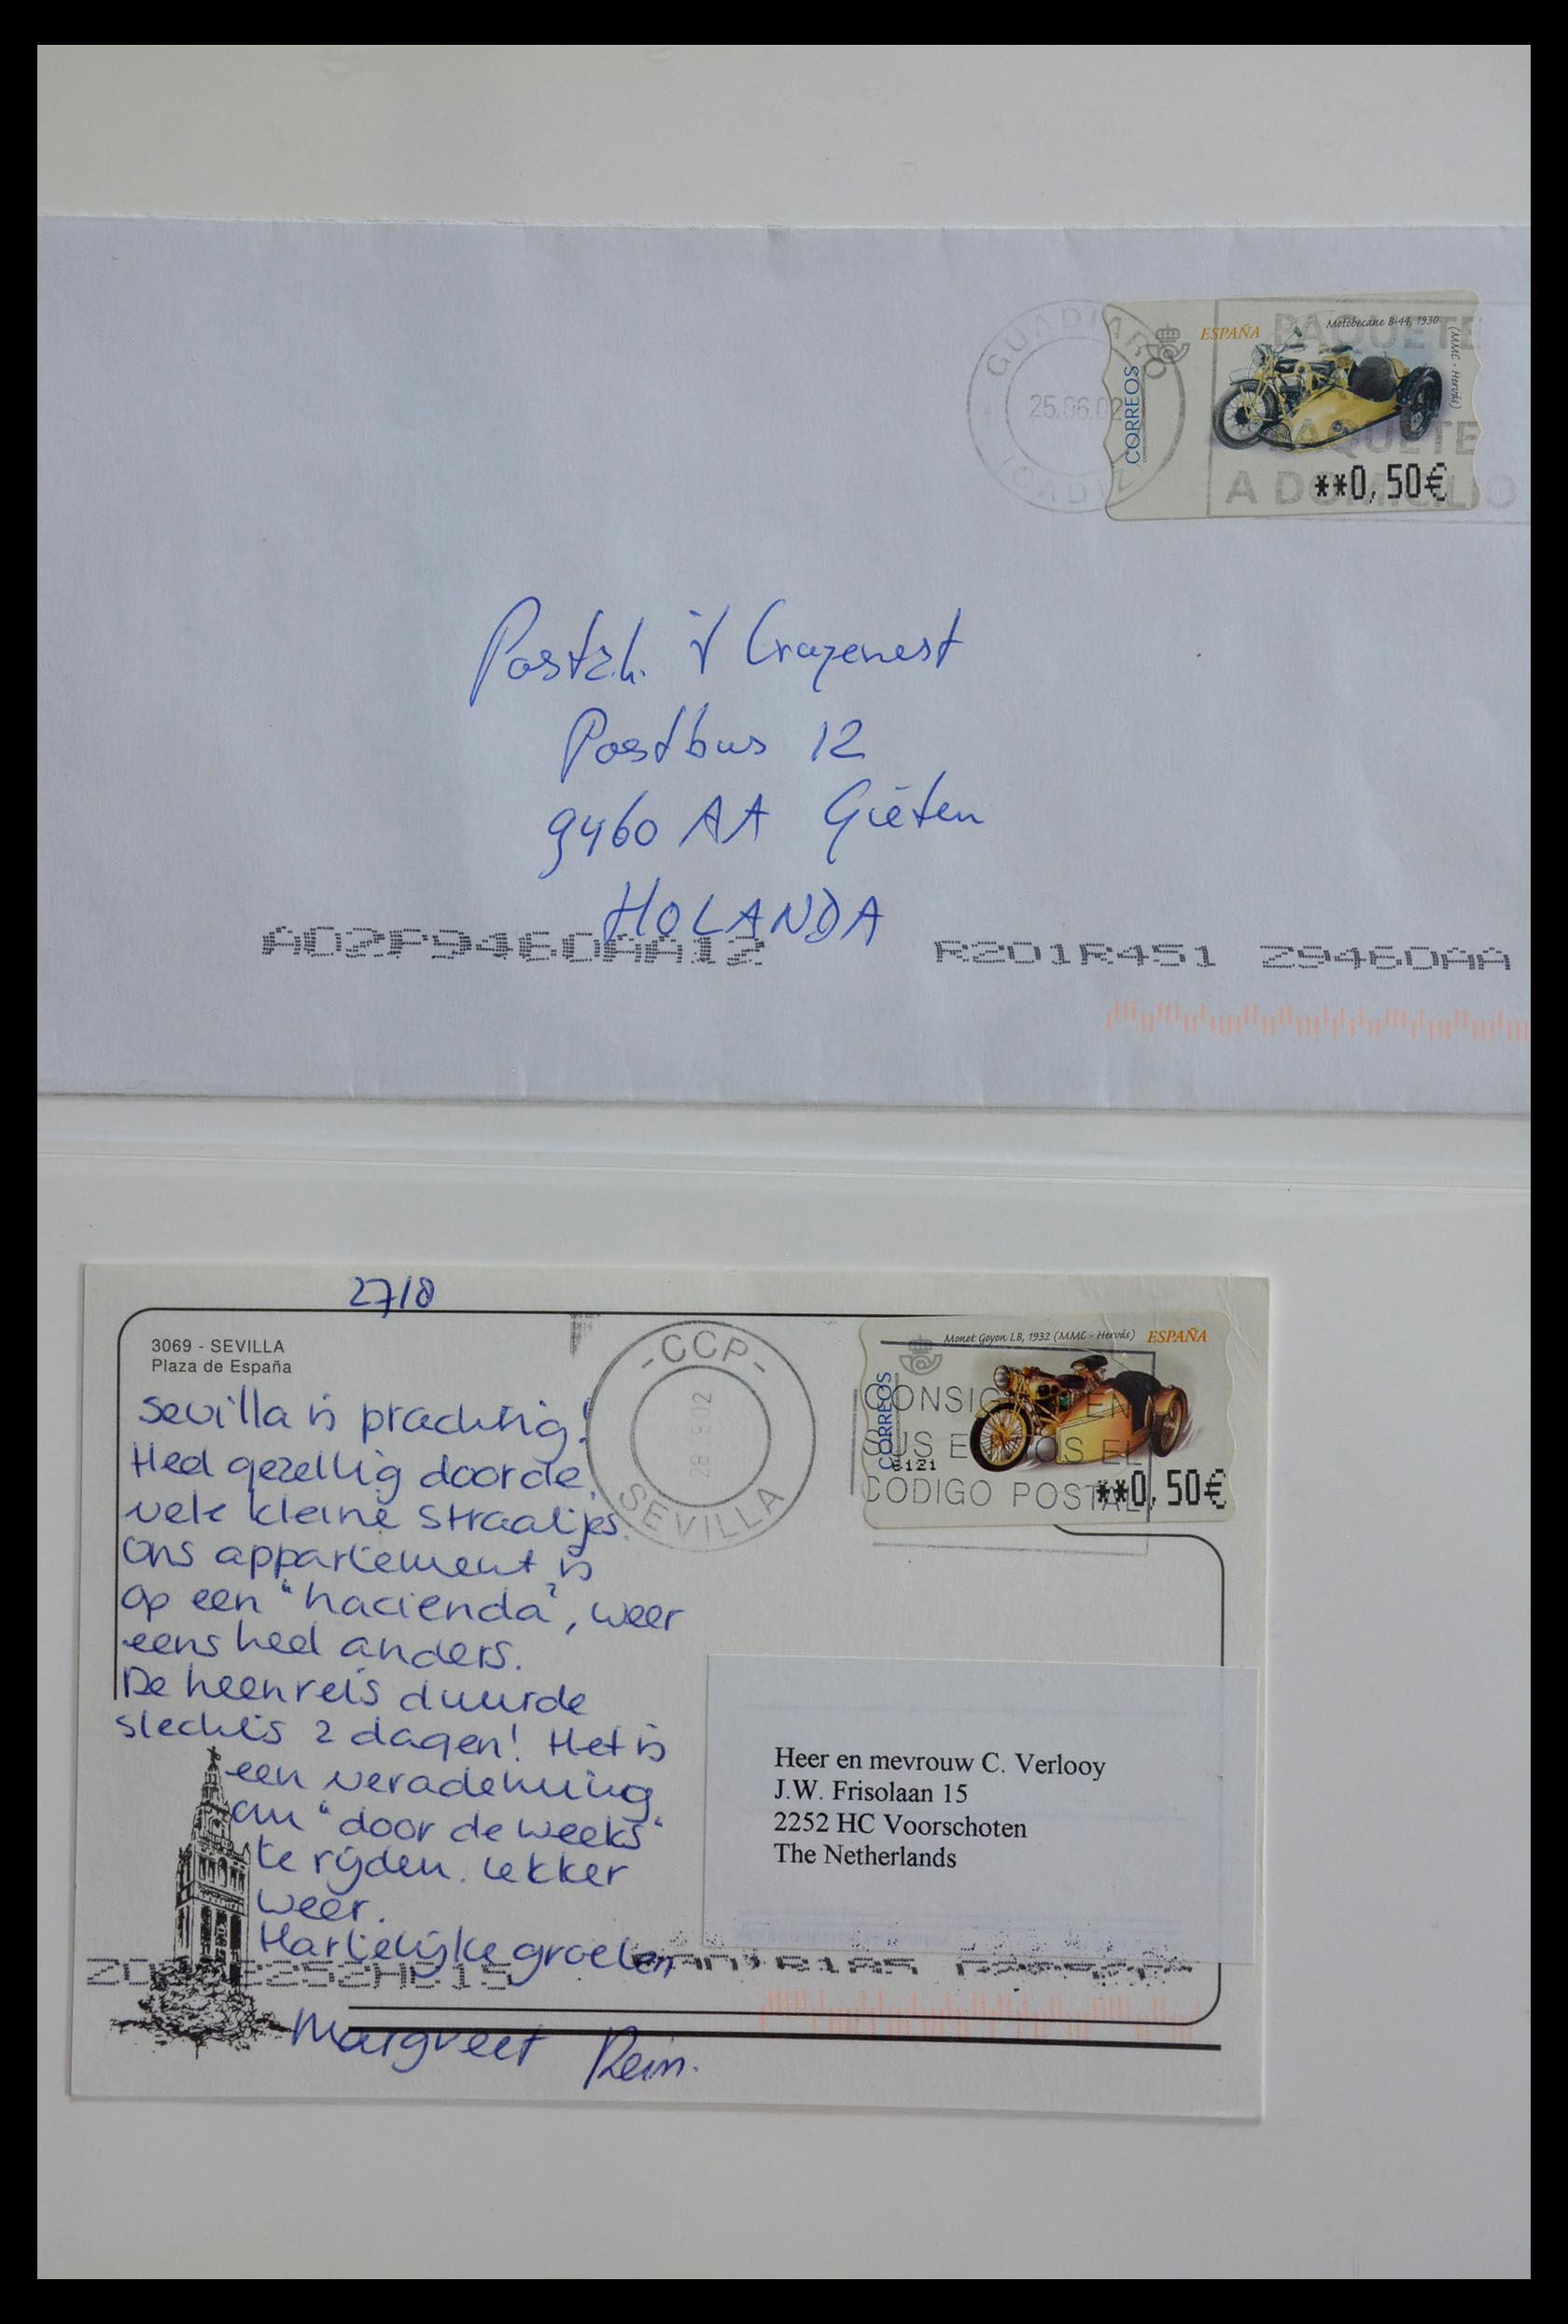 GUADIARO
25.06.02
(CADIZ)
CORREOS
ESPAÑA
Motobecane B-44, 1930
(MMC - Hervás)
PAQUETE
PAQUETE
A DOMICILIO
**0,50€
Postzh. 't Crazenest
Postbus 12
9460 AA Gieten
HOLANDA
A02P9460AA12 R201R451 Z9460AA
27/8
3069 - SEVILLA
Plaza de España
-CCP-
SEVILLA
CORREOS
Monet Goyon LB, 1932 (MMC - Hervás) ESPAÑA
CONSIGNE EN
SUS ENVIOS EL
CODIGO POSTAL
6121
**0,50€
Sevilla is prachtig!
Heel gezellig door de
vele kleine straatjes.
Ons appartement is
op een "hacienda", weer
eens heel anders.
De heenreis duurde
slechts 2 dagen! Het is
een verademing
om "door de weeks"
te rijden. Lekker
weer.
Hartelijke groeten
Margreet Rein.
Heer en mevrouw C. Verlooy
J.W. Frisolaan 15
2252 HC Voorschoten
The Netherlands